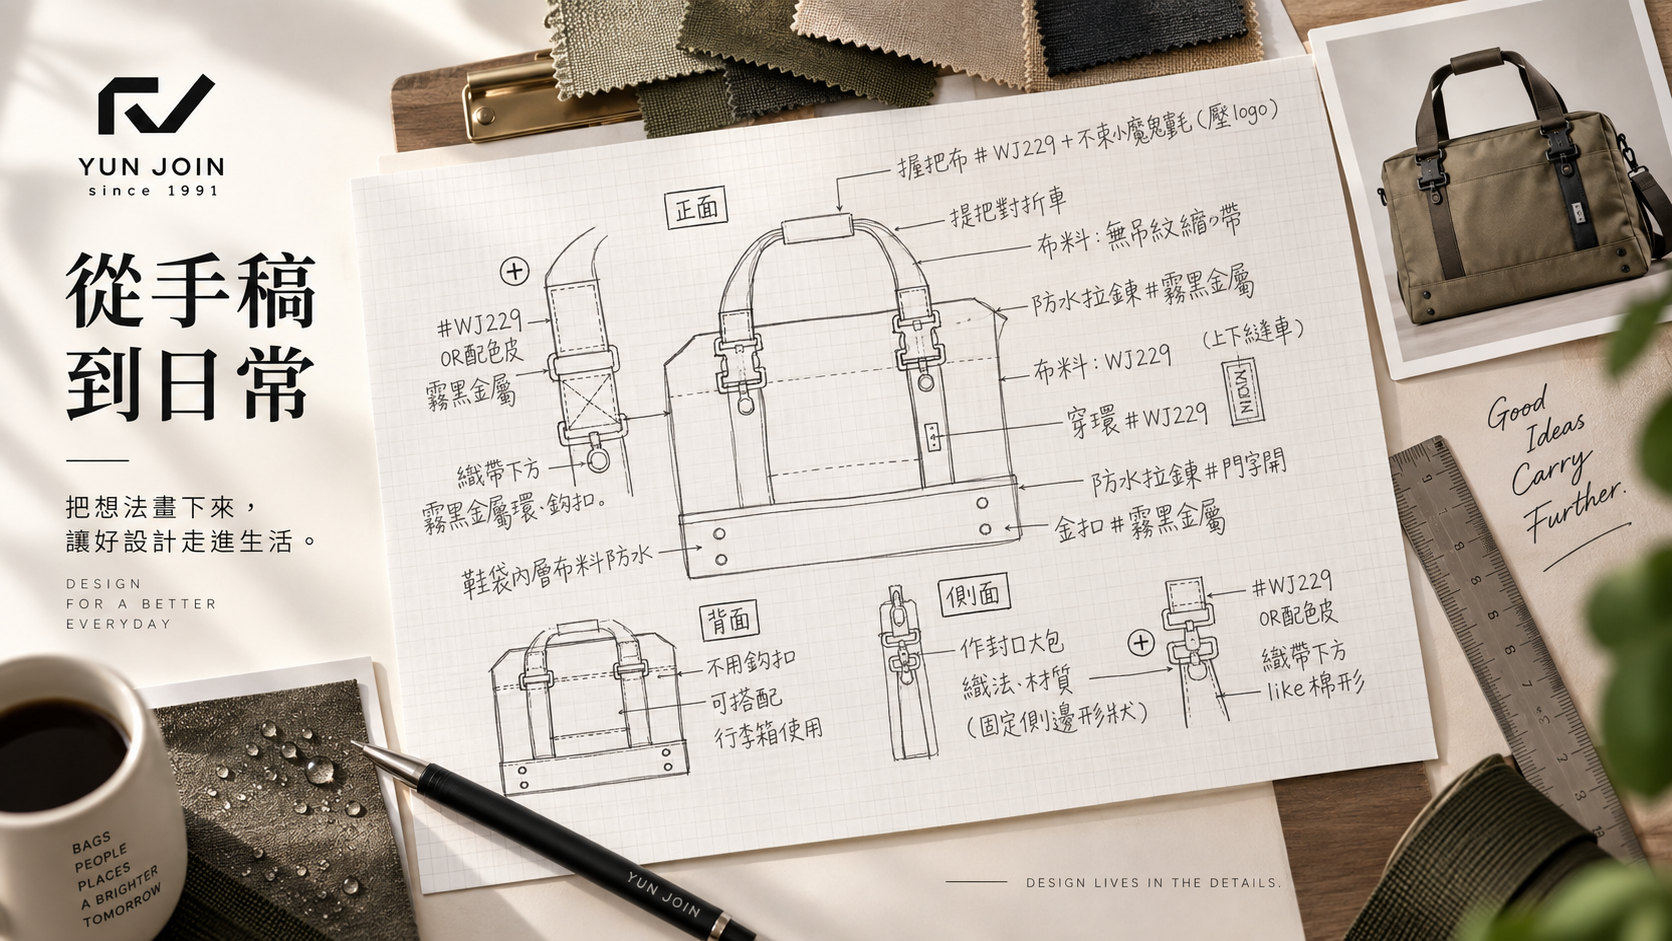 YUN JOIN
since 1991
從手稿
到日常
把想法畫下來，
讓好設計走進生活。
DESIGN
FOR A BETTER
EVERYDAY
正面
握把布 #WJ229 + 不束小魔鬼氈 (壓logo)
提把對折車
布料：無吊紋縮の帶
防水拉鍊 #霧黑金屬
布料：WJ229
(上下縫車)
穿環 #WJ229
防水拉鍊 #門字開
金扣 #霧黑金屬
#WJ229
OR配色皮
霧黑金屬
織帶下方
霧黑金屬環、鈎扣。
鞋袋內層布料防水
背面
不用鈎扣
可搭配
行李箱使用
側面
作封口大包
織法、材質
(固定側邊形狀)
#WJ229
OR配色皮
織帶下方
like棉形
Good
Ideas
Carry
Further.
BAGS
PEOPLE
PLACES
A BRIGHTER
TOMORROW
YUN JOIN
DESIGN LIVES IN THE DETAILS.